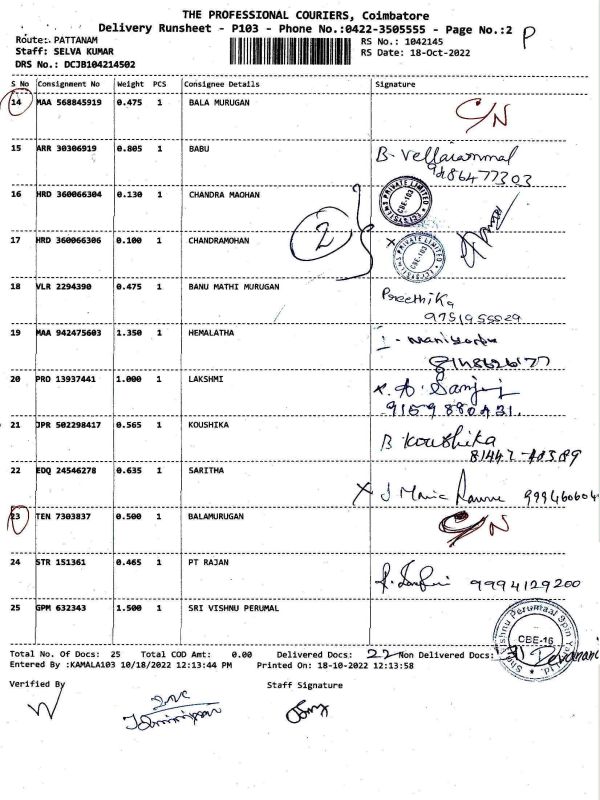 THE PROFESSIONAL COURIERS, Coimbatore
Delivery Runsheet - P103 - Phone No.:0422-3505555 - Page No.:2 P
Route: PATTANAM RS No.: 1042145
Staff: SELVA KUMAR RS Date: 18-Oct-2022
DRS No.: DCJB104214502
S No Consignment No Weight PCS Consignee Details Signature
14 MAA 568845919 0.475 1 BALA MURUGAN C/N
15 ARR 30306919 0.805 1 BABU B. Vellaiammal
9486477303
16 HRD 360066304 0.130 1 CHANDRA MAOHAN PRIVATE LIMITED CBE-103
2
17 HRD 360066306 0.100 1 CHANDRAMOHAN x PRIVATE LIMITED CBE-103
18 VLR 2294390 0.475 1 BANU MATHI MURUGAN Preethika
9751955529
19 MAA 942475603 1.350 1 HEMALATHA
20 PRO 13937441 1.000 1 LAKSHMI
9159880431.
21 JPR 502298417 0.565 1 KOUSHIKA B Koushika
22 EDQ 24546278 0.635 1 SARITHA
X J Maria 999460604
23 TEN 7303837 0.500 1 BALAMURUGAN C/N
24 STR 151361 0.465 1 PT RAJAN
9994129200
25 GPM 632343 1.500 1 SRI VISHNU PERUMAL
CBE-16
Total No. Of Docs: 25 Total COD Amt: 0.00 Delivered Docs: 22 Non Delivered Docs: Devanani
Entered By :KAMALA103 10/18/2022 12:13:44 PM Printed On: 18-10-2022 12:13:58
Verified By Staff Signature